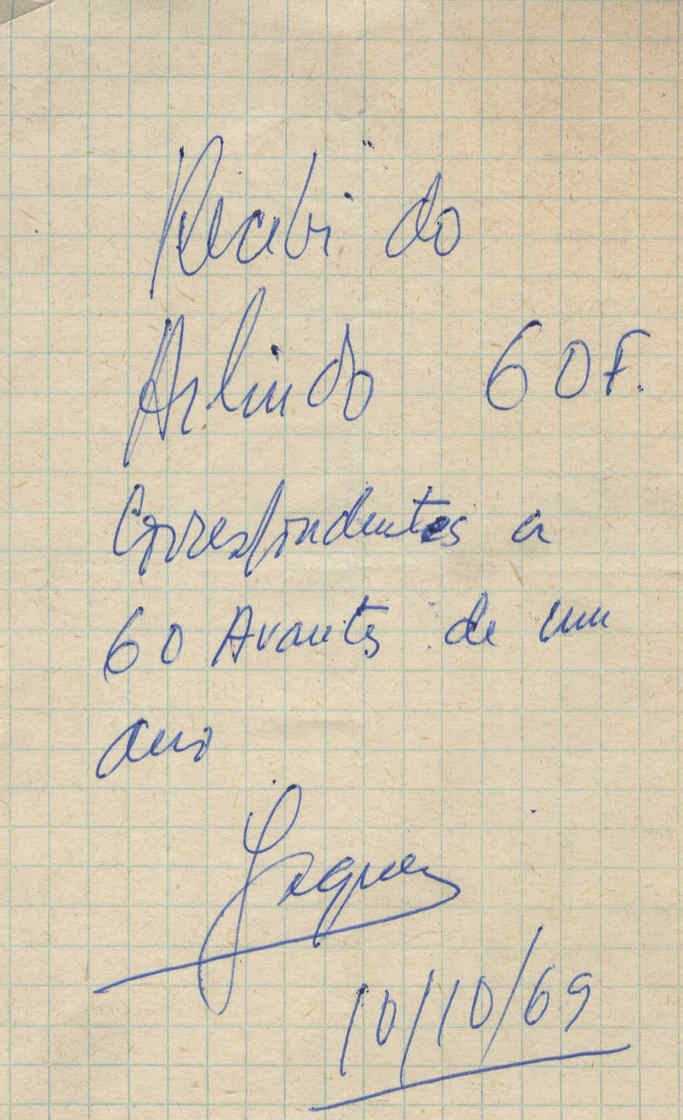 Recebi do
Arlindo 60F.
Correspondentes a
60 Avantes de um
ano
Jaques
10/10/69